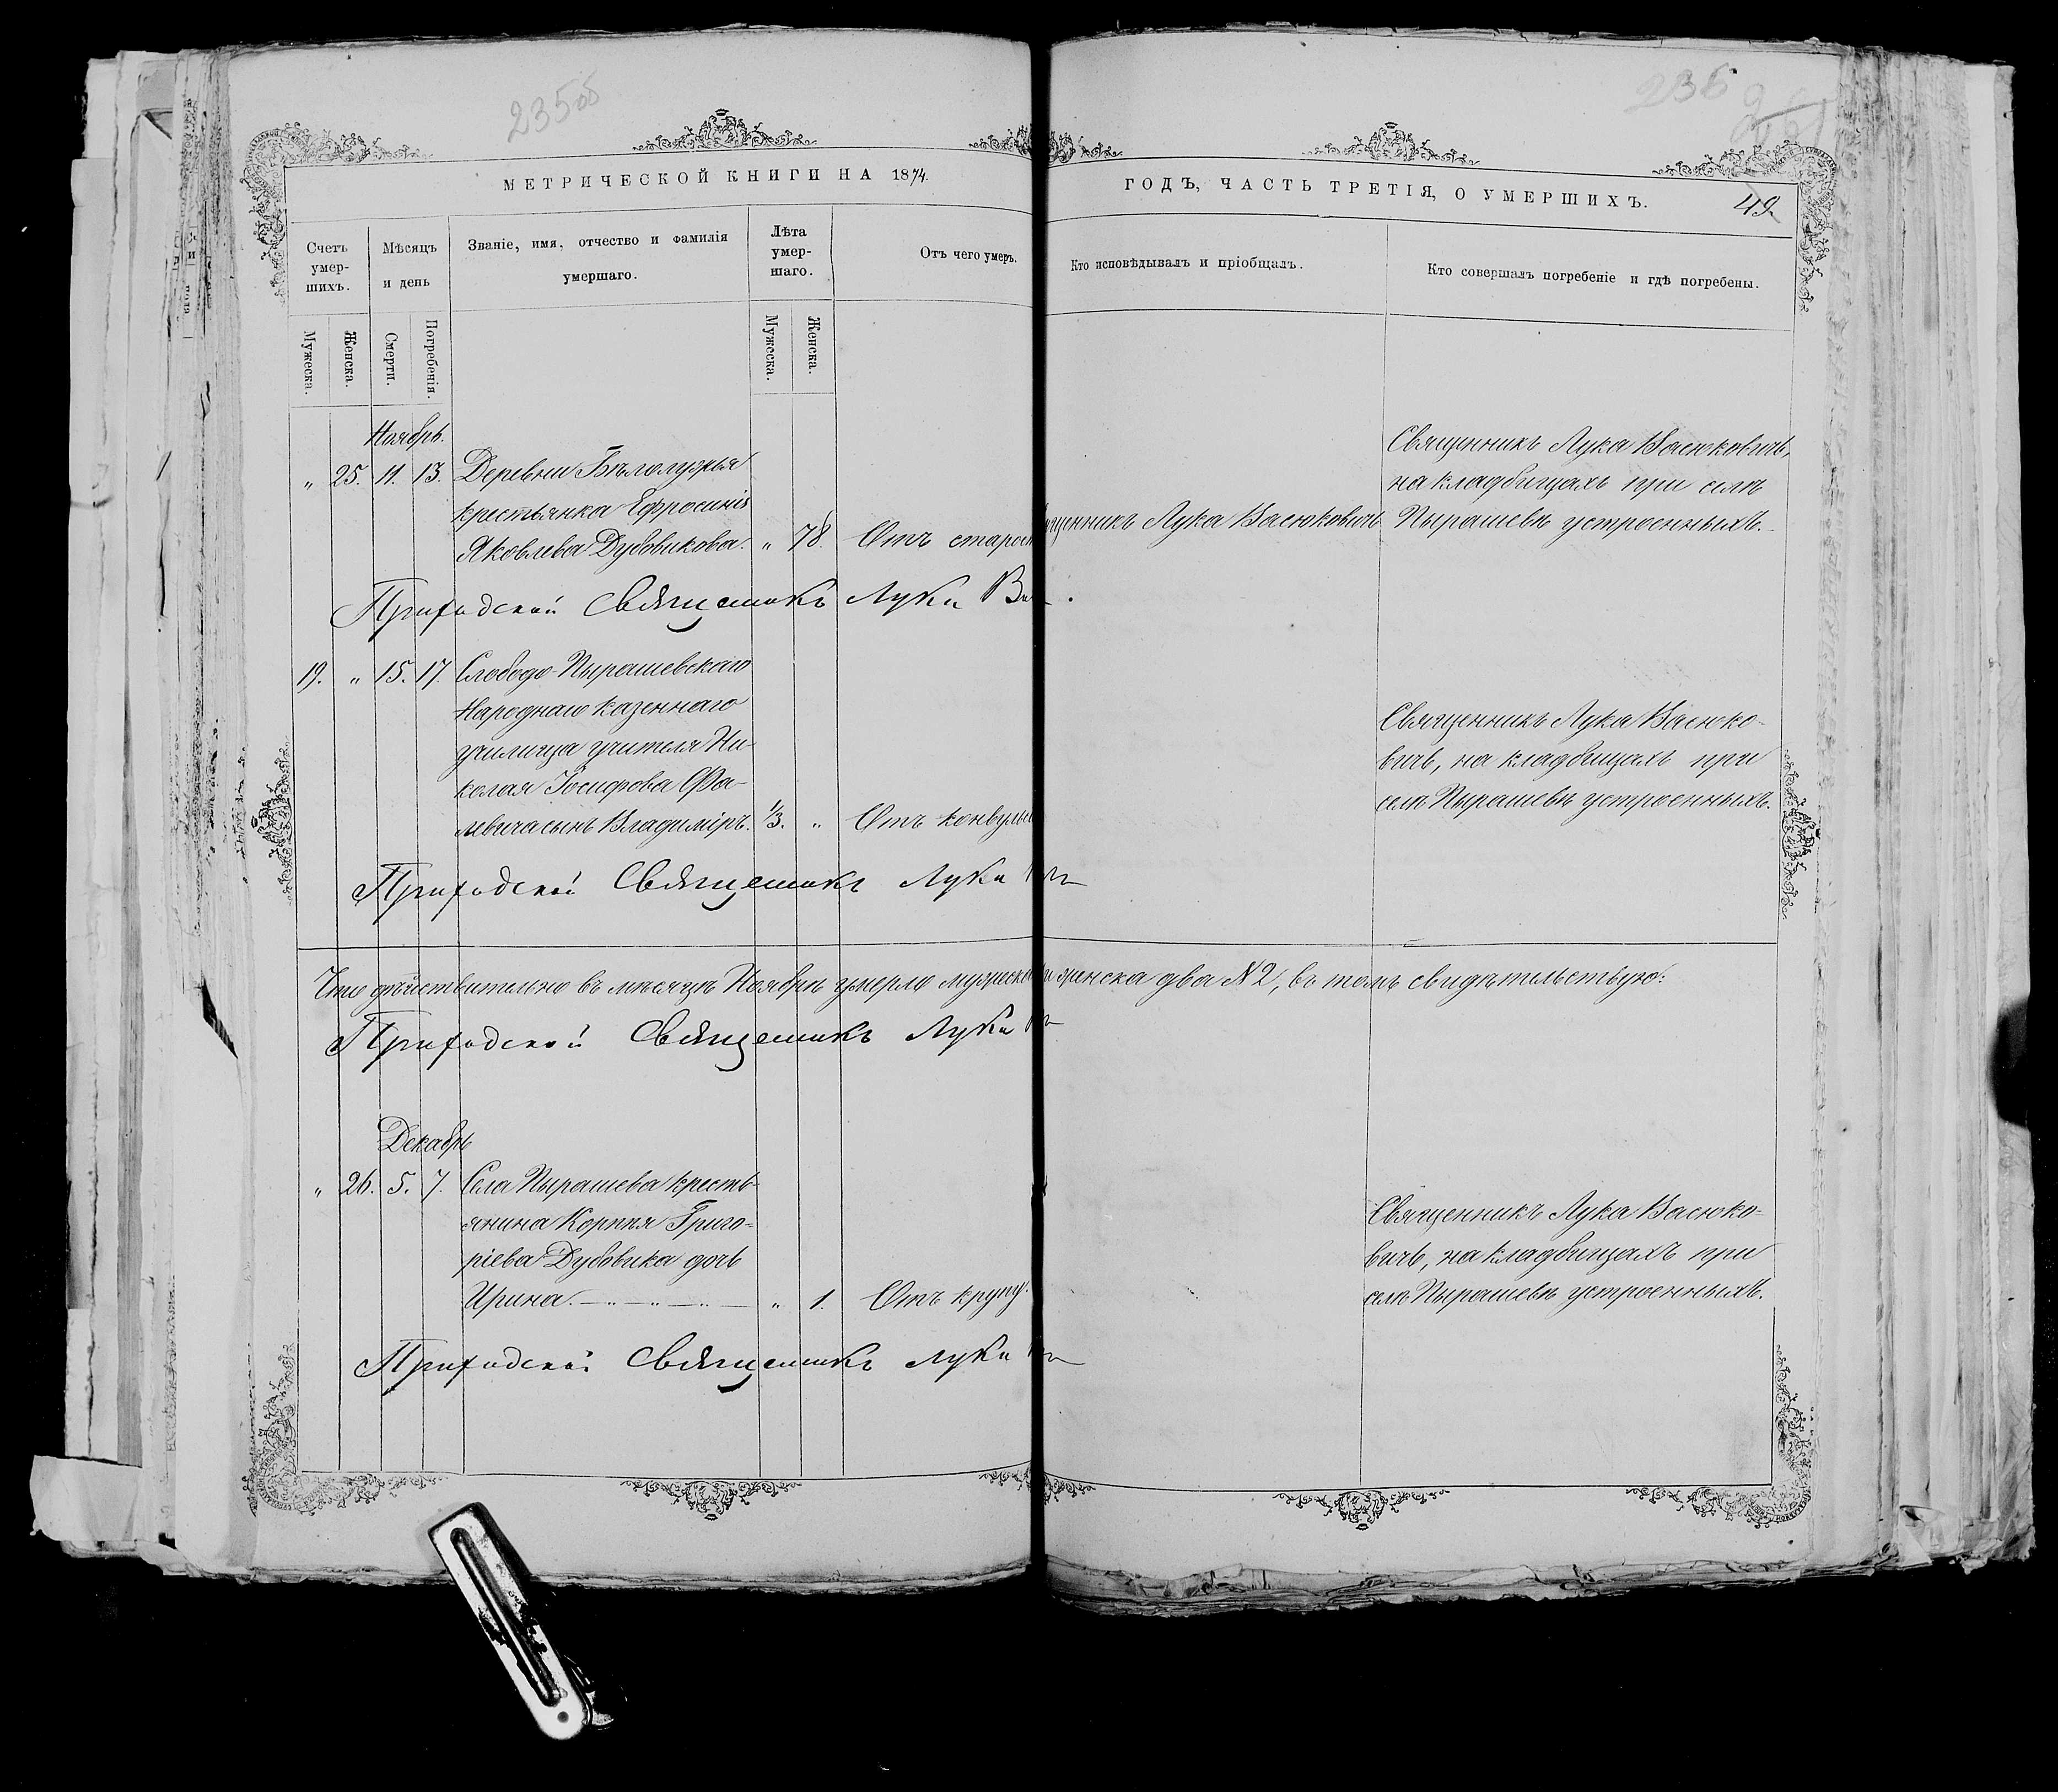 235об
236
МЕТРИЧЕСКОЙ КНИГИ НА 1874.
ГОДЪ, ЧАСТЬ ТРЕТІЯ, О УМЕРШИХЪ.
49.
Счетъ умер-шихъ.
Мѣсяцъ и день
Званіе, имя, отчество и фамилія умершаго.
Лѣта умер-шаго.
Отъ чего умеръ.
Кто исповѣдывалъ и пріобщалъ.
Кто совершалъ погребеніе и гдѣ погребены.
Мужеска.
Женска.
Смерти.
Погребенія.
Мужеска.
Женска.
Ноябрь.
„ 25. 11. 13. Деревни Бѣлолужья
крестьянка Ефросинія
Яковлева Дубовикова. „ 78. Отъ старост
щенникъ Лука Васюковичъ
Священникъ Лука Васюковичъ,
на кладбищахъ при селѣ
Пырашевѣ устроенныхъ.
Приходскій Священникъ Лука Ва
19. „ 15. 17. Слободо-Пырашевскаго
Народнаго казеннаго
училища учителя Ни-
колая Іосифова Фа-
левича сынъ Владиміръ. 1/3. „ Отъ конвульс
Священникъ Лука Васюко-
вичъ, на кладбищахъ при
селѣ Пырашевѣ устроенныхъ.
Приходскій Священникъ Лука
Что дѣйствительно въ мѣсяцѣ Ноябрѣ умерло мужеска и женска два №2, въ томъ свидѣтельствую:
Приходскій Священникъ Лука
Декабрь
„ 26. 5. 7. Села Пырашева кресть-
янина Корнія Григо-
ріева Дубовика дочь
Ирина. „ 1. Отъ крупу.
Священникъ Лука Васюко-
вичъ, на кладбищахъ при
селѣ Пырашевѣ устроенныхъ.
Приходскій Священникъ Лука